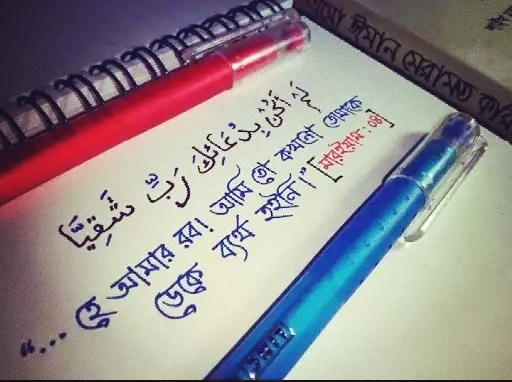 ঈমান মেরামত
لَمْ أَكُنْ بِدُعَائِكَ رَبِّ شَقِيًّا
“... হে আমার রব! আমি তো কখনো তোমাকে
ডেকে ব্যর্থ হইনি।” [মারইয়াম : ০৪]